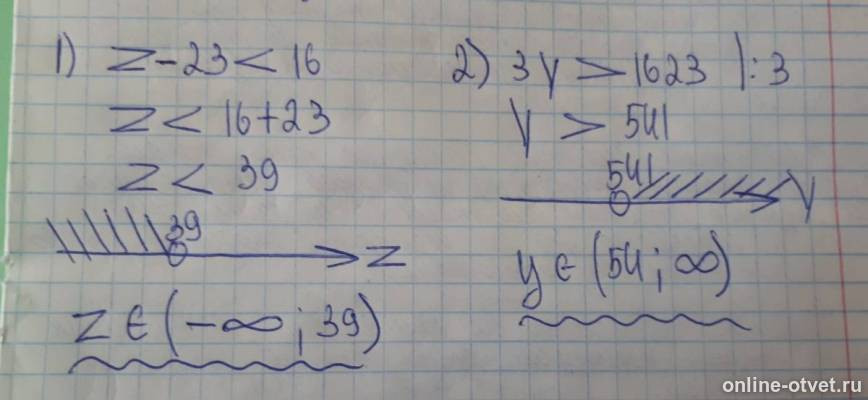 1) z - 23 < 16
z < 16 + 23
z < 39
39
z
z ∈ (-∞; 39)
2) 3y > 1623 |: 3
y > 541
541
y
y ∈ (541; ∞)
online-otvet.ru